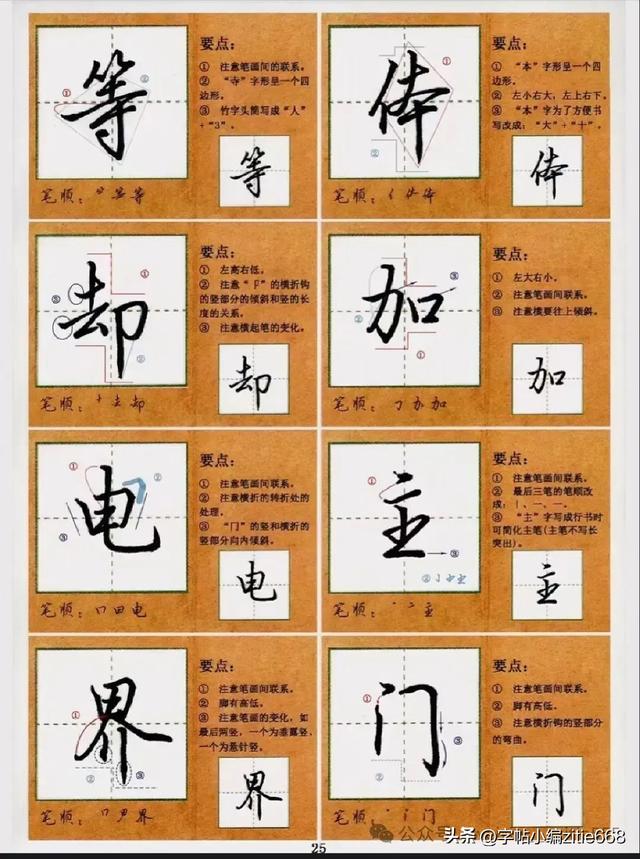 等
要点：
① 注意笔画间的联系。
② “寺”字形呈一个四
边形。
③ 竹字头简写成“人”
+“3”。
等
笔顺：
等
体
要点：
① “本”字形呈一个四
边形。
② 左小右大，左上右下。
③ “本”字为了方便书
写改成：“大”+“十”。
体
笔顺：
体
却
要点：
① 左高右低。
② 注意“卩”的横折钩
的竖部分的倾斜和竖的长
度的关系。
③ 注意横起笔的变化。
却
笔顺：十去却
加
要点：
① 左大右小。
② 注意笔画间联系。
③ 注意横要往上倾斜。
加
笔顺：㇆加加
电
要点：
① 注意笔画间联系。
② 注意横折的转折处的
处理。
③ “冂”的竖和横折的
竖部分向内倾斜。
电
笔顺：口田电
主
要点：
① 注意笔画间联系。
② 最后三笔的笔顺改
成：丨、一、一。
③ “主”字写成行书时
可简化主笔(主笔不写长
突出)。
主
笔顺：丶二主
界
要点：
① 注意笔画间联系。
② 脚有高低。
③ 注意笔画的变化，如
最后两竖，一个为垂露竖，
一个为悬针竖。
界
笔顺：
界
门
要点：
① 注意笔画间联系。
② 脚有高低。
③ 注意横折钩的竖部分
的弯曲。
门
笔顺：
门
25
公众号
头条 @字帖小编zitie668